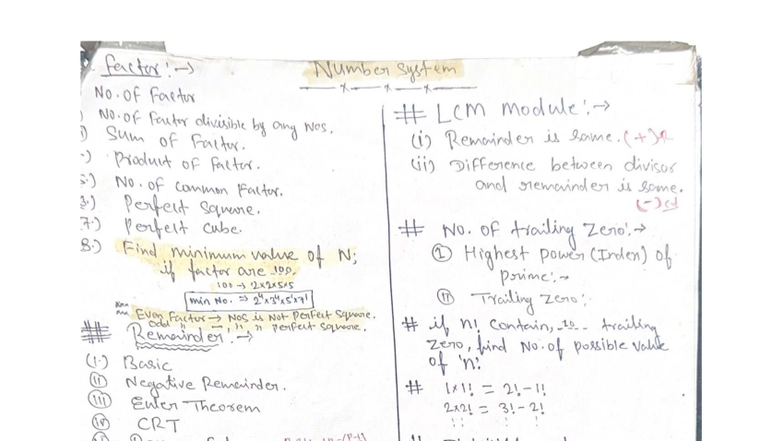 Number System
Factor :→
No. of Factor
No. of Factor divisible by any Nos.
Sum of Factor.
Product of Factor.
No. of Common Factor.
Perfect Square.
7.) Perfect Cube.
8.) Find minimum value of N;
if factor are 100.
100 → 2×2×5×5
min No. ⇒ 2⁴×3⁴×5¹×7¹
Even Factor → Nos is Not Perfect Square.
Odd " → " " Perfect Square.
## Remainder :→
(1.) Basic
(II) Negative Remainder.
(III) Euler Theorem
(IV) CRT
# LCM Module :→
(i) Remainder is same. (+)R
(ii) Difference between divisor
and remainder is same.
(-) cd
# No. of trailing Zero :→
(I) Highest power (Index) of
prime :→
(II) Trailing Zero :
# if n! Contain, 10 trailing
Zero, find No. of possible value
of 'n!
# 1×1! = 2! - 1!
2×2! = 3! - 2!